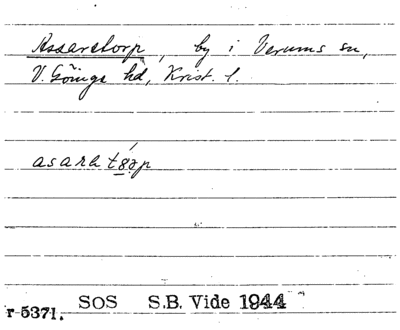 Assaretorp, by i Verums sn,
V. Göinge hd, Krist. l.
SOS S.B. Vide 1944
r 5371.